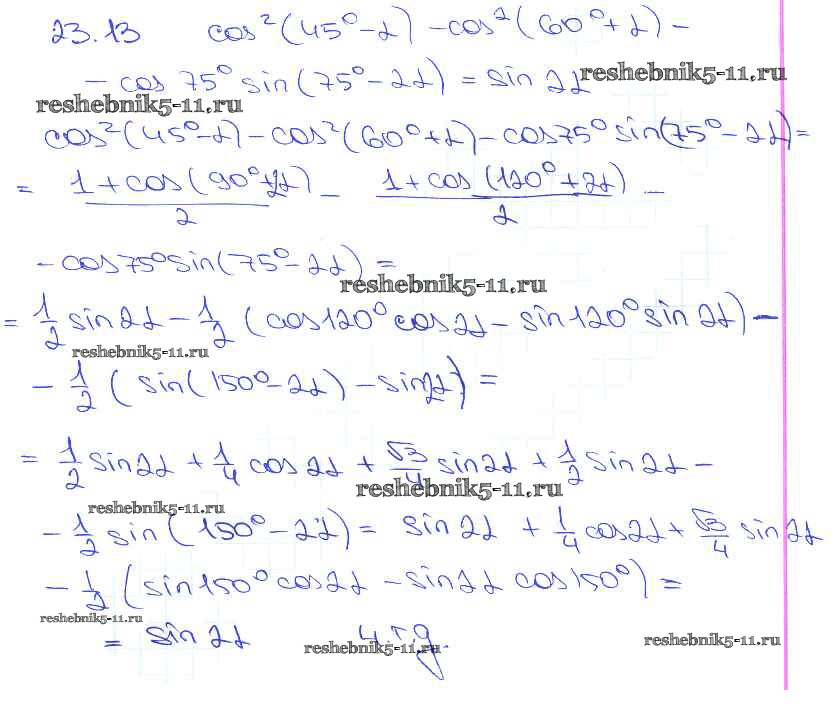 23.13 cos²(45⁰-α) -cos²(60⁰+α)-
- cos 75⁰ sin(75⁰-2α) = sin 2α reshebnik5-11.ru
reshebnik5-11.ru
cos²(45⁰-α)-cos²(60⁰+α)-cos75⁰sin(75⁰-2α)=
= (1+cos(90⁰-2α))/2 - (1+cos(120⁰+2α))/2 -
-cos75⁰sin(75⁰-2α)=
reshebnik5-11.ru
= 1/2 sin2α - 1/2 (cos120⁰cos2α-sin120⁰sin2α)-
reshebnik5-11.ru
- 1/2 (sin(150⁰-2α)-sin2α)=
= 1/2 sin2α + 1/4 cos2α + √3/4 sin2α + 1/2 sin2α -
reshebnik5-11.ru
reshebnik5-11.ru
- 1/2 sin(150⁰-2α)= sin2α + 1/4 cos2α + √3/4 sin2α
- 1/2 (sin150⁰cos2α-sin2α cos150⁰)=
reshebnik5-11.ru
= sin2α ч.т.д.
reshebnik5-11.ru
reshebnik5-11.ru